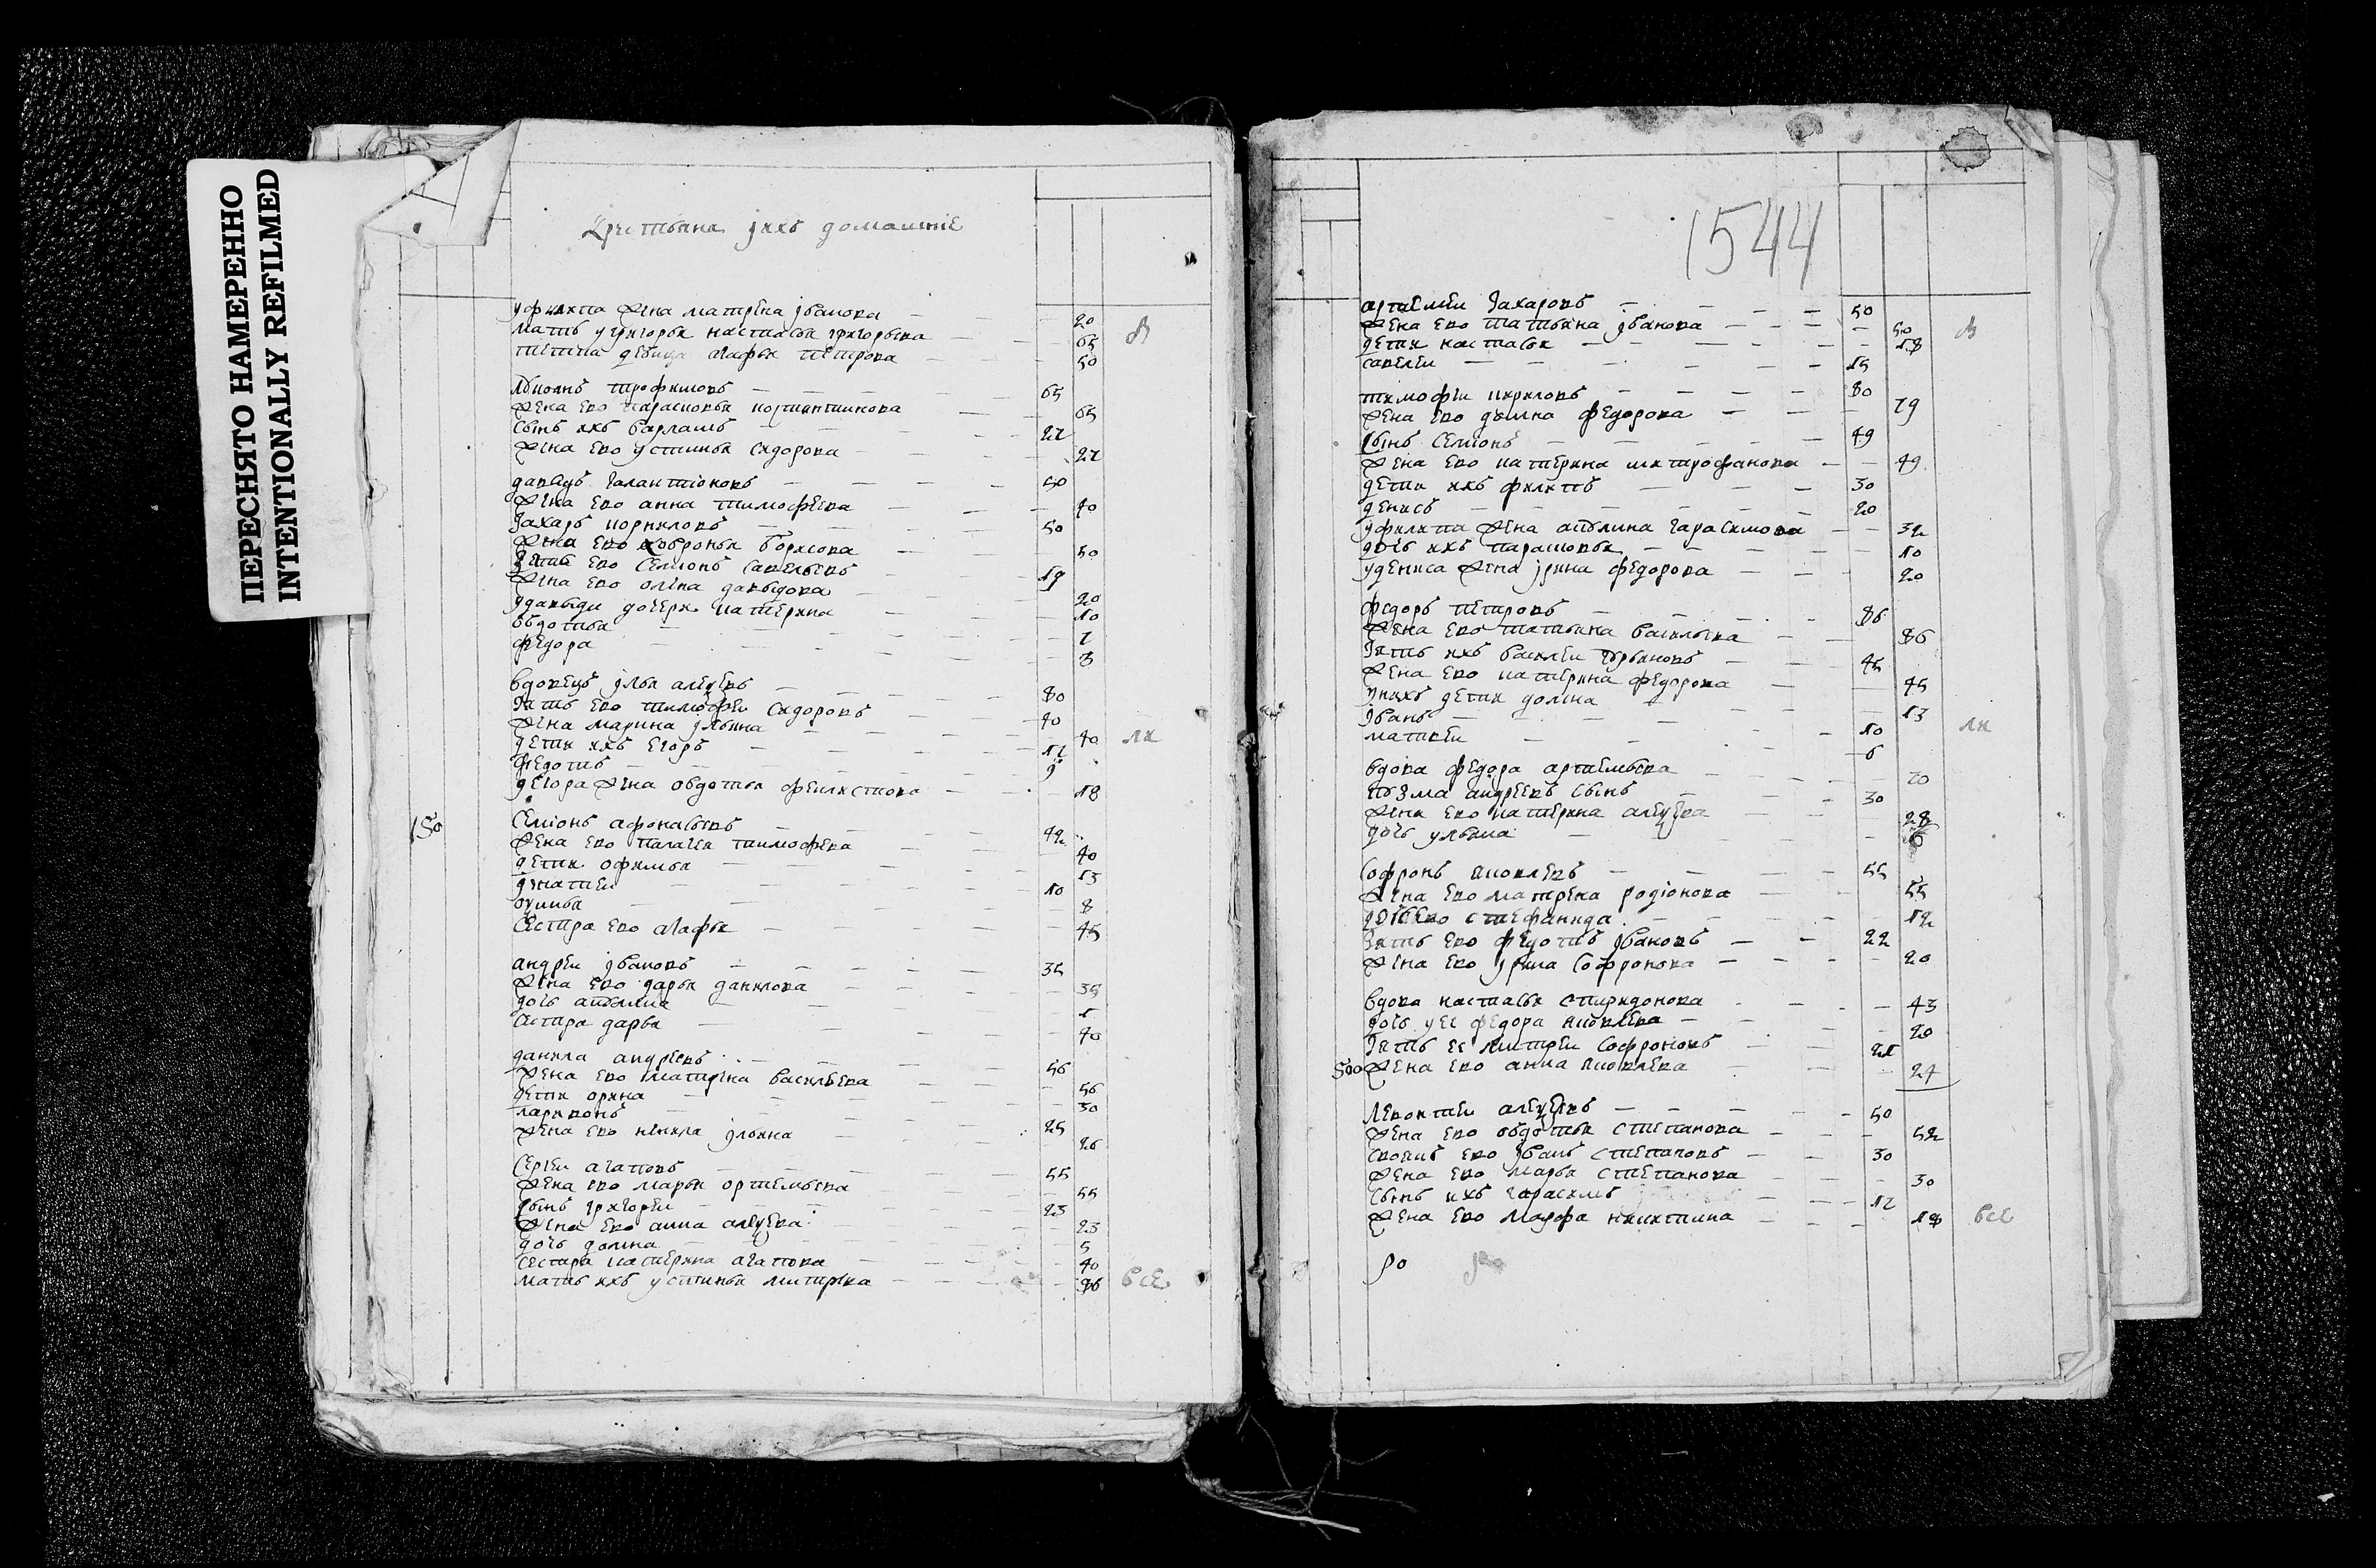 ПЕРЕСНЯТО НАМЕРЕННО
INTENTIONALLY REFILMED
крестьяна iихъ домашнiе
жена матрена iванова 20
мать григорья настасья григорьева 65
тетка девица агафья петрова 50
трофимовъ 65
жена ево парасковья костянтинова 65
сынъ ихъ варламъ 27
жена ево устинья сидорова 27
давыдъ галантiоновъ 50
жена ево анна тимофеева 40
захаръ корниловъ 50
жена ево ховронья борисова 50
зять ево семионъ савельевъ 19
жена ево олена давыдова 20
удавыда дочери катерина 10
овдотья 7
федора 3
вдовецъ iлья алеѯевъ 80
зять ево тимофеи сидоровъ 40
жена марина iльина 40
дети ихъ егоръ 17
федотъ 9
уегора жена овдотья феклистова 18
150 семионъ афонасьевъ 42
жена ево палагея тимофева 40
дети офимья 13
iгнатеи 10
8
сестра ево агафья 45
андреи iвановъ 35
жена ево дарья данилова 35
дочь 1
сестра дарья 40
данила андреевъ 56
жена ево матрена васильева 56
дети орина 30
ларивонъ 25
жена ево ненила iльина 26
сергеи агаповъ 55
жена ево марья ортемьева 55
сынъ григореи 23
жена ево анна алеѯева 23
дочь домна 5
сестра катерина агапова 40
мать ихъ устинья митрева 86 все
1544
артемеи захаровъ 50
жена ево татьяна iванова 50
дети настасья 18
савелеи 15
тимофеи кириловъ 80
жена ево улияна федорова 79
сынъ семионъ 49
жена ево катерина митрофанова 49
дети ихъ филипъ 30
денисъ 20
уфилипа жена акулина гарасимова 32
дочь ихъ парасковья 10
удениса жена iрина федорова 20
федоръ петровъ 86
жена ево татьяна васильева 86
зять ихъ василеи 45
жена ево катерина федорова 45
уних дети домна 13
iванъ 10
матвеи 6
вдова федора артемьева 70
кузма андреевъ сынъ 30
жена ево катерина алеѯева 28
дочь ульяна 6
софронъ яковлевъ 55
жена ево матрена родiонова 55
дочь ево стефанида 12
зять ево федотъ iвановъ 22
жена ево iрина софронова 20
вдова настасья спиридонова 43
дочь уее федора яковлева 20
зять ее митреи софроновъ 21
500 жена ево анна яковлева 27
левонтеи алеѯевъ 50
жена ево овдотья степанова 52
своякъ ево iванъ степановъ 30
жена ево марья степанова 30
сынъ ихъ гарасимъ 17
жена ево марфа никитина 18 все